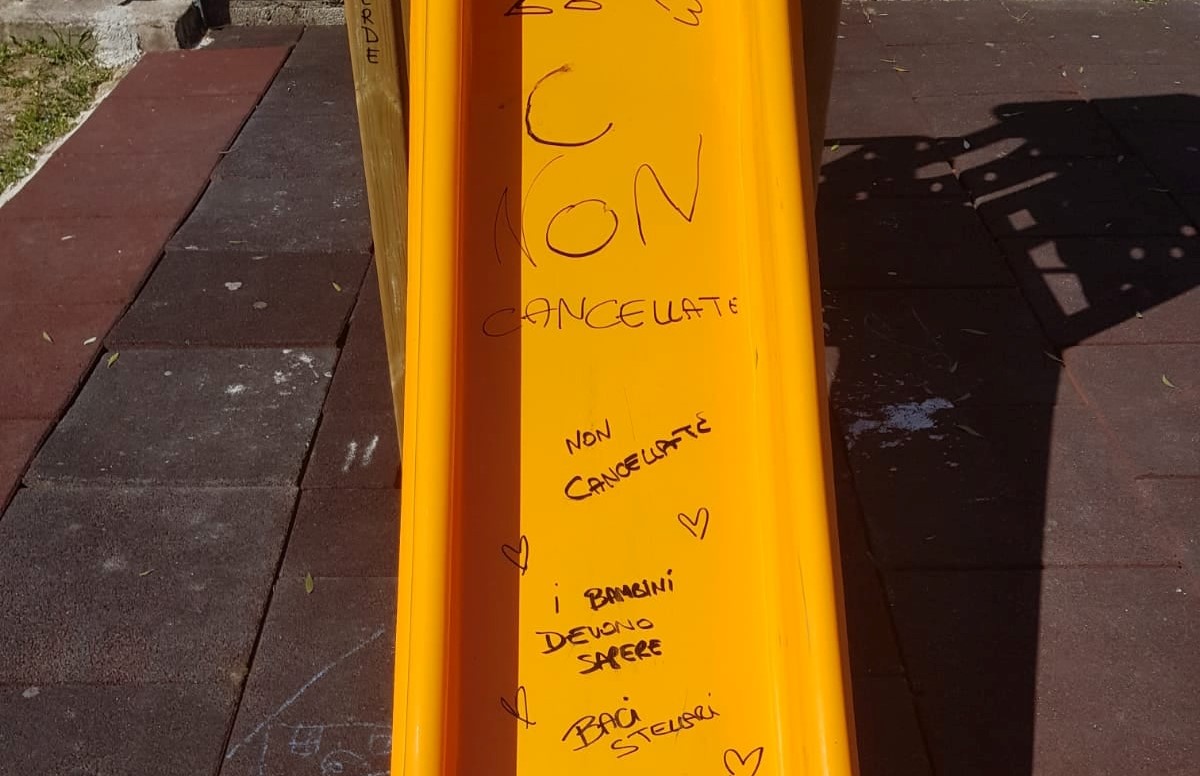 ERDE
C
NON
CANCELLATE
NON
CANCELLATE
i BAMBINI
DEVONO
SAPERE
BACI
STELLARI